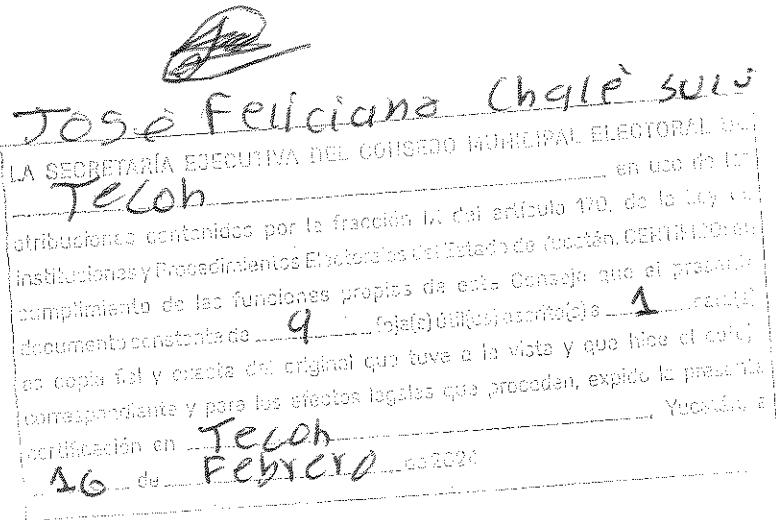 José Feliciano Chalé sulú
LA SECRETARÍA EJECUTIVA DEL CONSEJO MUNICIPAL ELECTORAL DE
Tecoh en uso de las
atribuciones contenidas por la fracción IX del artículo 170, de la Ley de
Instituciones y Procedimientos Electorales del Estado de Yucatán, CERTIFICO: en
cumplimiento de las funciones propias de este Consejo que el presente
documento constante de 9 foja(s) útil(es) escrito(s) a 1 cara(s)
es copia fiel y exacta del original que tuve a la vista y que hice el cotejo
correspondiente y para los efectos legales que procedan, expido la presente
certificación en Tecoh, Yucatán, a
16 de Febrero de 2024